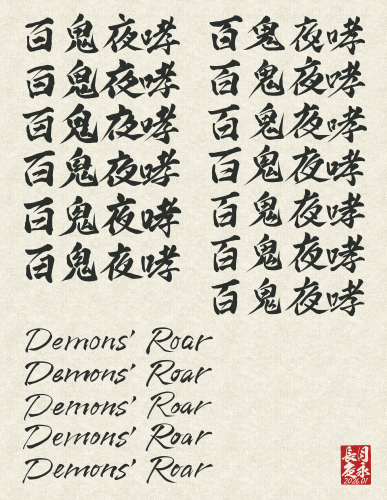 百鬼夜哮
百鬼夜哮
百鬼夜哮
百鬼夜哮
百鬼夜哮
百鬼夜哮
百鬼夜哮
百鬼夜哮
百鬼夜哮
百鬼夜哮
百鬼夜哮
百鬼夜哮
百鬼夜哮
Demons' Roar
Demons' Roar
Demons' Roar
Demons' Roar
Demons' Roar
2026.01